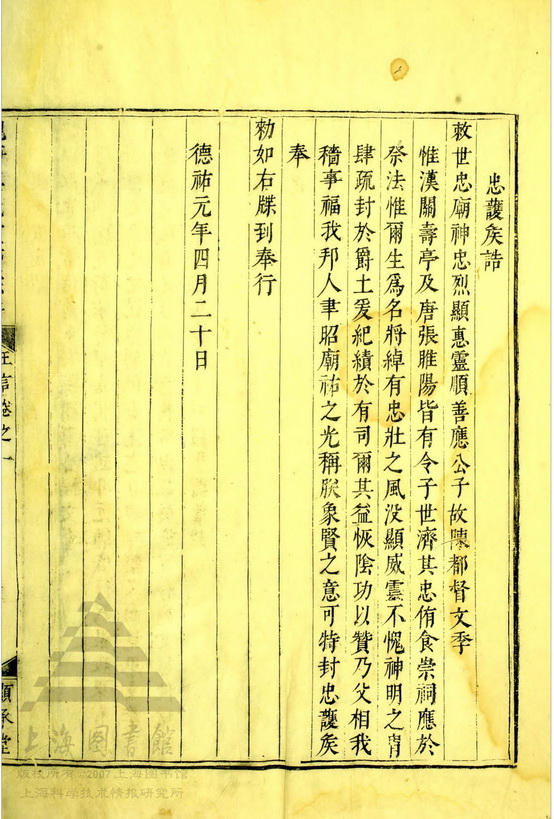 忠護矦誥
敕世忠廟神忠烈顯惠靈順善應公子故陳都督文季
惟漢關壽亭及唐張睢陽皆有令子世濟其忠侑食崇祠應於
祭法惟爾生爲名將綽有忠壯之風没顯威靈不愧神明之胄
肆疏封於爵土爰紀績於有司爾其益恢陰功以贊乃父相我
穡事福我邦人聿昭廟祐之光稱朕象賢之意可特封忠護矦
奉
勑如右牒到奉行
德祐元年四月二十日
卷之一
順承堂
上海图書館
版权所有©2007上海图书馆
上海科学技术情报研究所